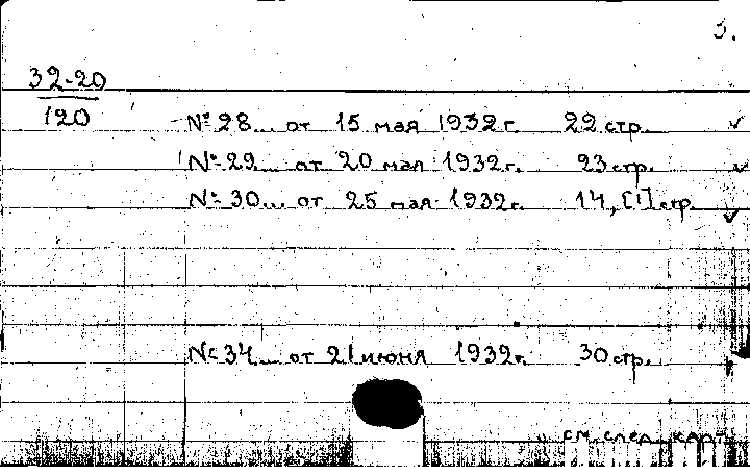 3.
32-20
120
№ 28... от 15 мая 1932 г. 22 стр.
№ 29... от 20 мая 1932 г. 23 стр.
№ 30... от 25 мая 1932 г. 14, [1] стр.
№ 34... от 21 июня 1932 г. 30 стр.
см. след. карт.